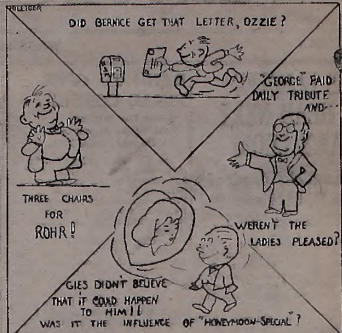 HILLIGER
DID BERNICE GET THAT LETTER, OZZIE?
"GEORGE" PAID
DAILY TRIBUTE
AND--
THREE CHAIRS
FOR
ROHR!
WEREN'T THE
LADIES PLEASED?
GIES DIDN'T BELIEVE
THAT IT COULD HAPPEN
TO HIM!!
WAS IT THE INFLUENCE OF "HONEYMOON-SPECIAL"?